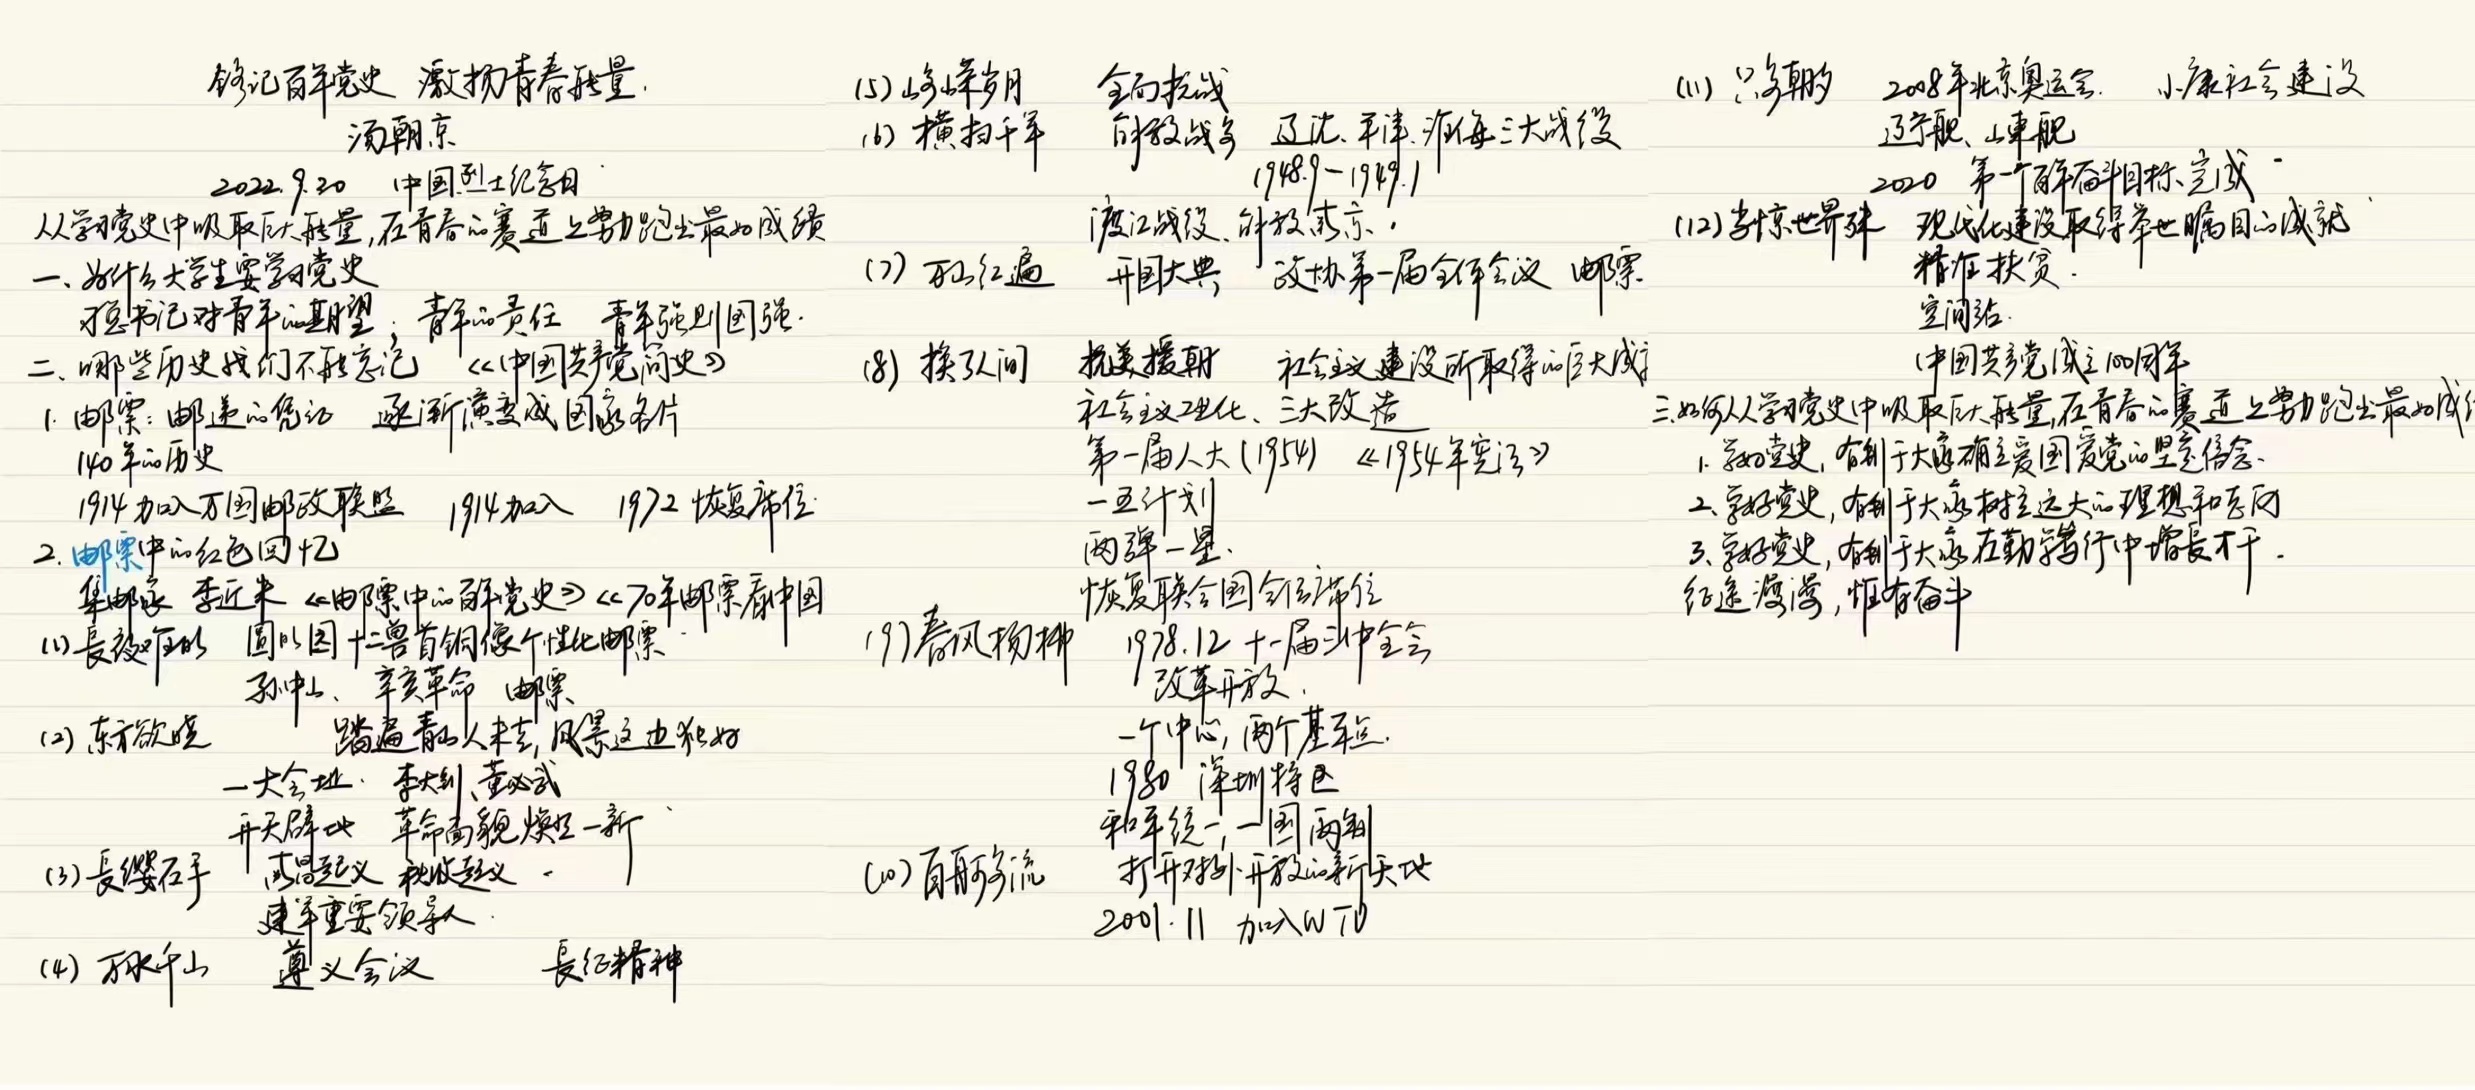 铭记百年党史 激扬青春能量.
汤朝京
2022.9.30 中国烈士纪念日
从学习党史中吸取巨大能量,在青春的赛道上努力跑出最好成绩
一、为什么大学生要学习党史
习总书记对青年的期望; 青年的责任 青年强则国强.
二、哪些历史我们不能忘记 《中国共产党简史》
1. 邮票:邮递的凭证 逐渐演变成国家名片
140年的历史
1914加入万国邮政联盟 1914加入 1972恢复席位
2. 邮票中的红色回忆
集邮家 李近朱 《邮票中的百年党史》《70年邮票看中国
(1) 长夜难明 圆明园十二兽首铜像个性化邮票
孙中山、辛亥革命 邮票
(2) 东方欲晓 踏遍青山人未老,风景这边独好
一大会址. 李大钊、董必武
开天辟地 革命面貌焕然一新
(3) 长缨在手 南昌起义 秋收起义.
建军重要领导人
(4) 万水千山 遵义会议 长征精神
(5) 峥嵘岁月 全面抗战
(6) 横扫千军 解放战争 辽沈、平津、淮海三大战役
1948.9-1949.1
渡江战役、解放南京.
(7) 万山红遍 开国大典 政协第一届全体会议 邮票
(8) 换了人间 抗美援朝 社会主义建设所取得的巨大成就
社会主义工业化、三大改造
第一届人大(1954) 《1954年宪法》
一五计划
两弹一星.
恢复联合国合法席位
(9) 春风杨柳 1978.12 十一届三中全会
改革开放.
一个中心,两个基本点.
1980 深圳特区
和平统一,一国两制
(10) 百舸争流 打开对外开放的新天地
2001.11 加入WTO
(11) 只争朝夕 2008年北京奥运会. 小康社会建设
辽宁舰、山东舰
2020 第一个百年奋斗目标完成
(12) 当惊世界殊 现代化建设取得举世瞩目的成就
精准扶贫.
空间站.
中国共产党成立100周年
三.如何从学习党史中吸取巨大能量,在青春的赛道上努力跑出最好成绩
1. 学好党史,有利于大家确立爱国爱党的坚定信念.
2. 学好党史,有利于大家树立远大的理想和志向
3. 学好党史,有利于大家在勤学笃行中增长才干.
征途漫漫,惟有奋斗